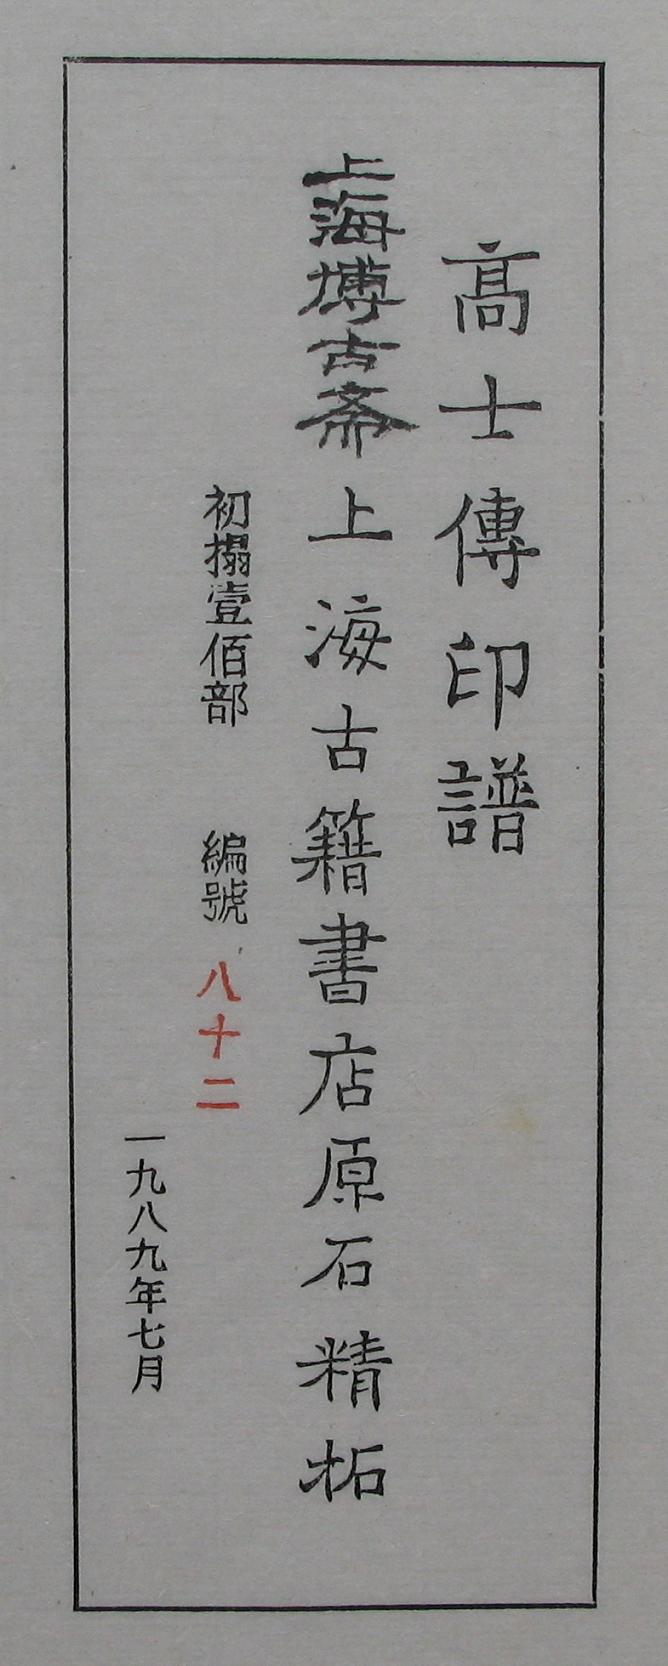 高士傳印譜
上海博古斋上海古籍書店原石精拓
初搨壹佰部 編號 八十二
一九八九年七月